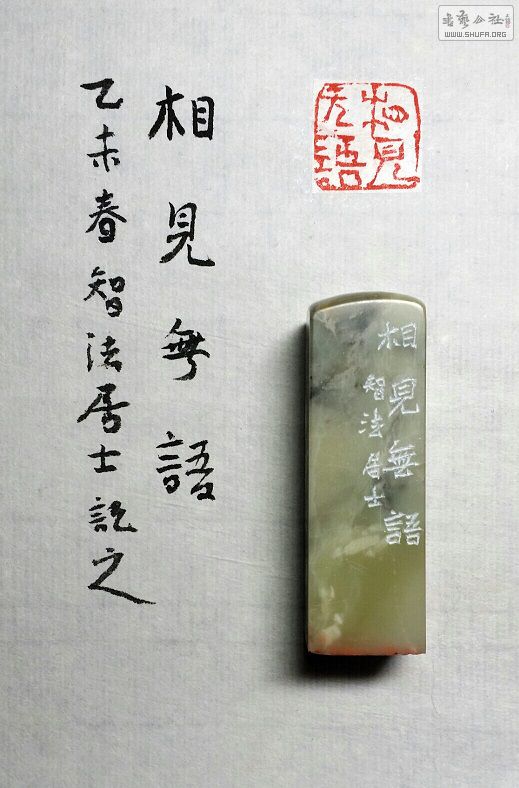 相見無語
乙未春智法居士記之
相見
无語
相見無語
智法居士
書藝公社
WWW.SHUFA.ORG